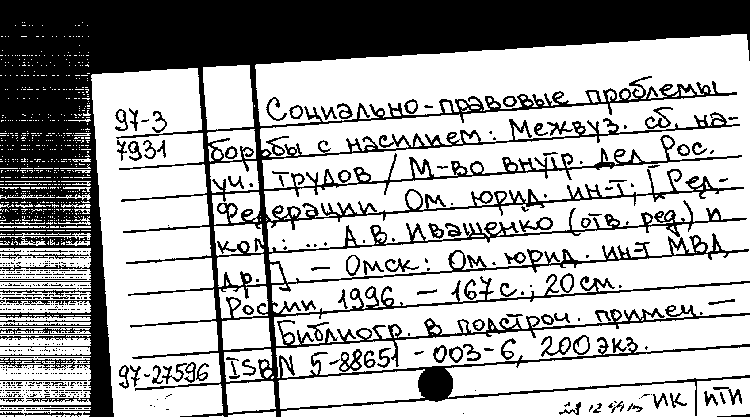 Социально-правовые проблемы
97-3
7931 борьбы с насилием: Межвуз. сб. на-
уч. трудов / М-во внутр. дел Рос.
Федерации, Ом. юрид. ин-т; [Ред-
кол.: ... А.В. Иващенко (отв. ред.) и
др.]. — Омск: Ом. юрид. ин-т МВД
России, 1996. — 167 с.; 20 см.
Библиогр. в подстроч. примеч. —
97-27596 ISBN 5-88651-003-6, 200 экз.
ИК пти